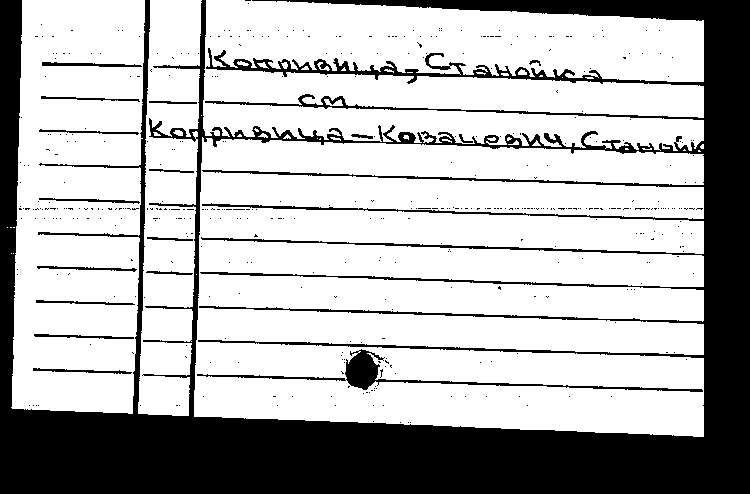 Копривица, Станойка
см.
Копривица – Ковачевич, Станойк